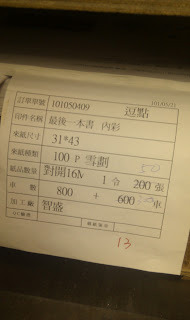 訂單單號 101050409 逗點 101/05/21
印件名稱 最後一本書 內彩
來紙尺寸 31*43
來紙種類 100 P 雪劃 50
紙品數量 對開16M 1 令 200 張
車 數 800 + 600 車
加工廠 智盛
13